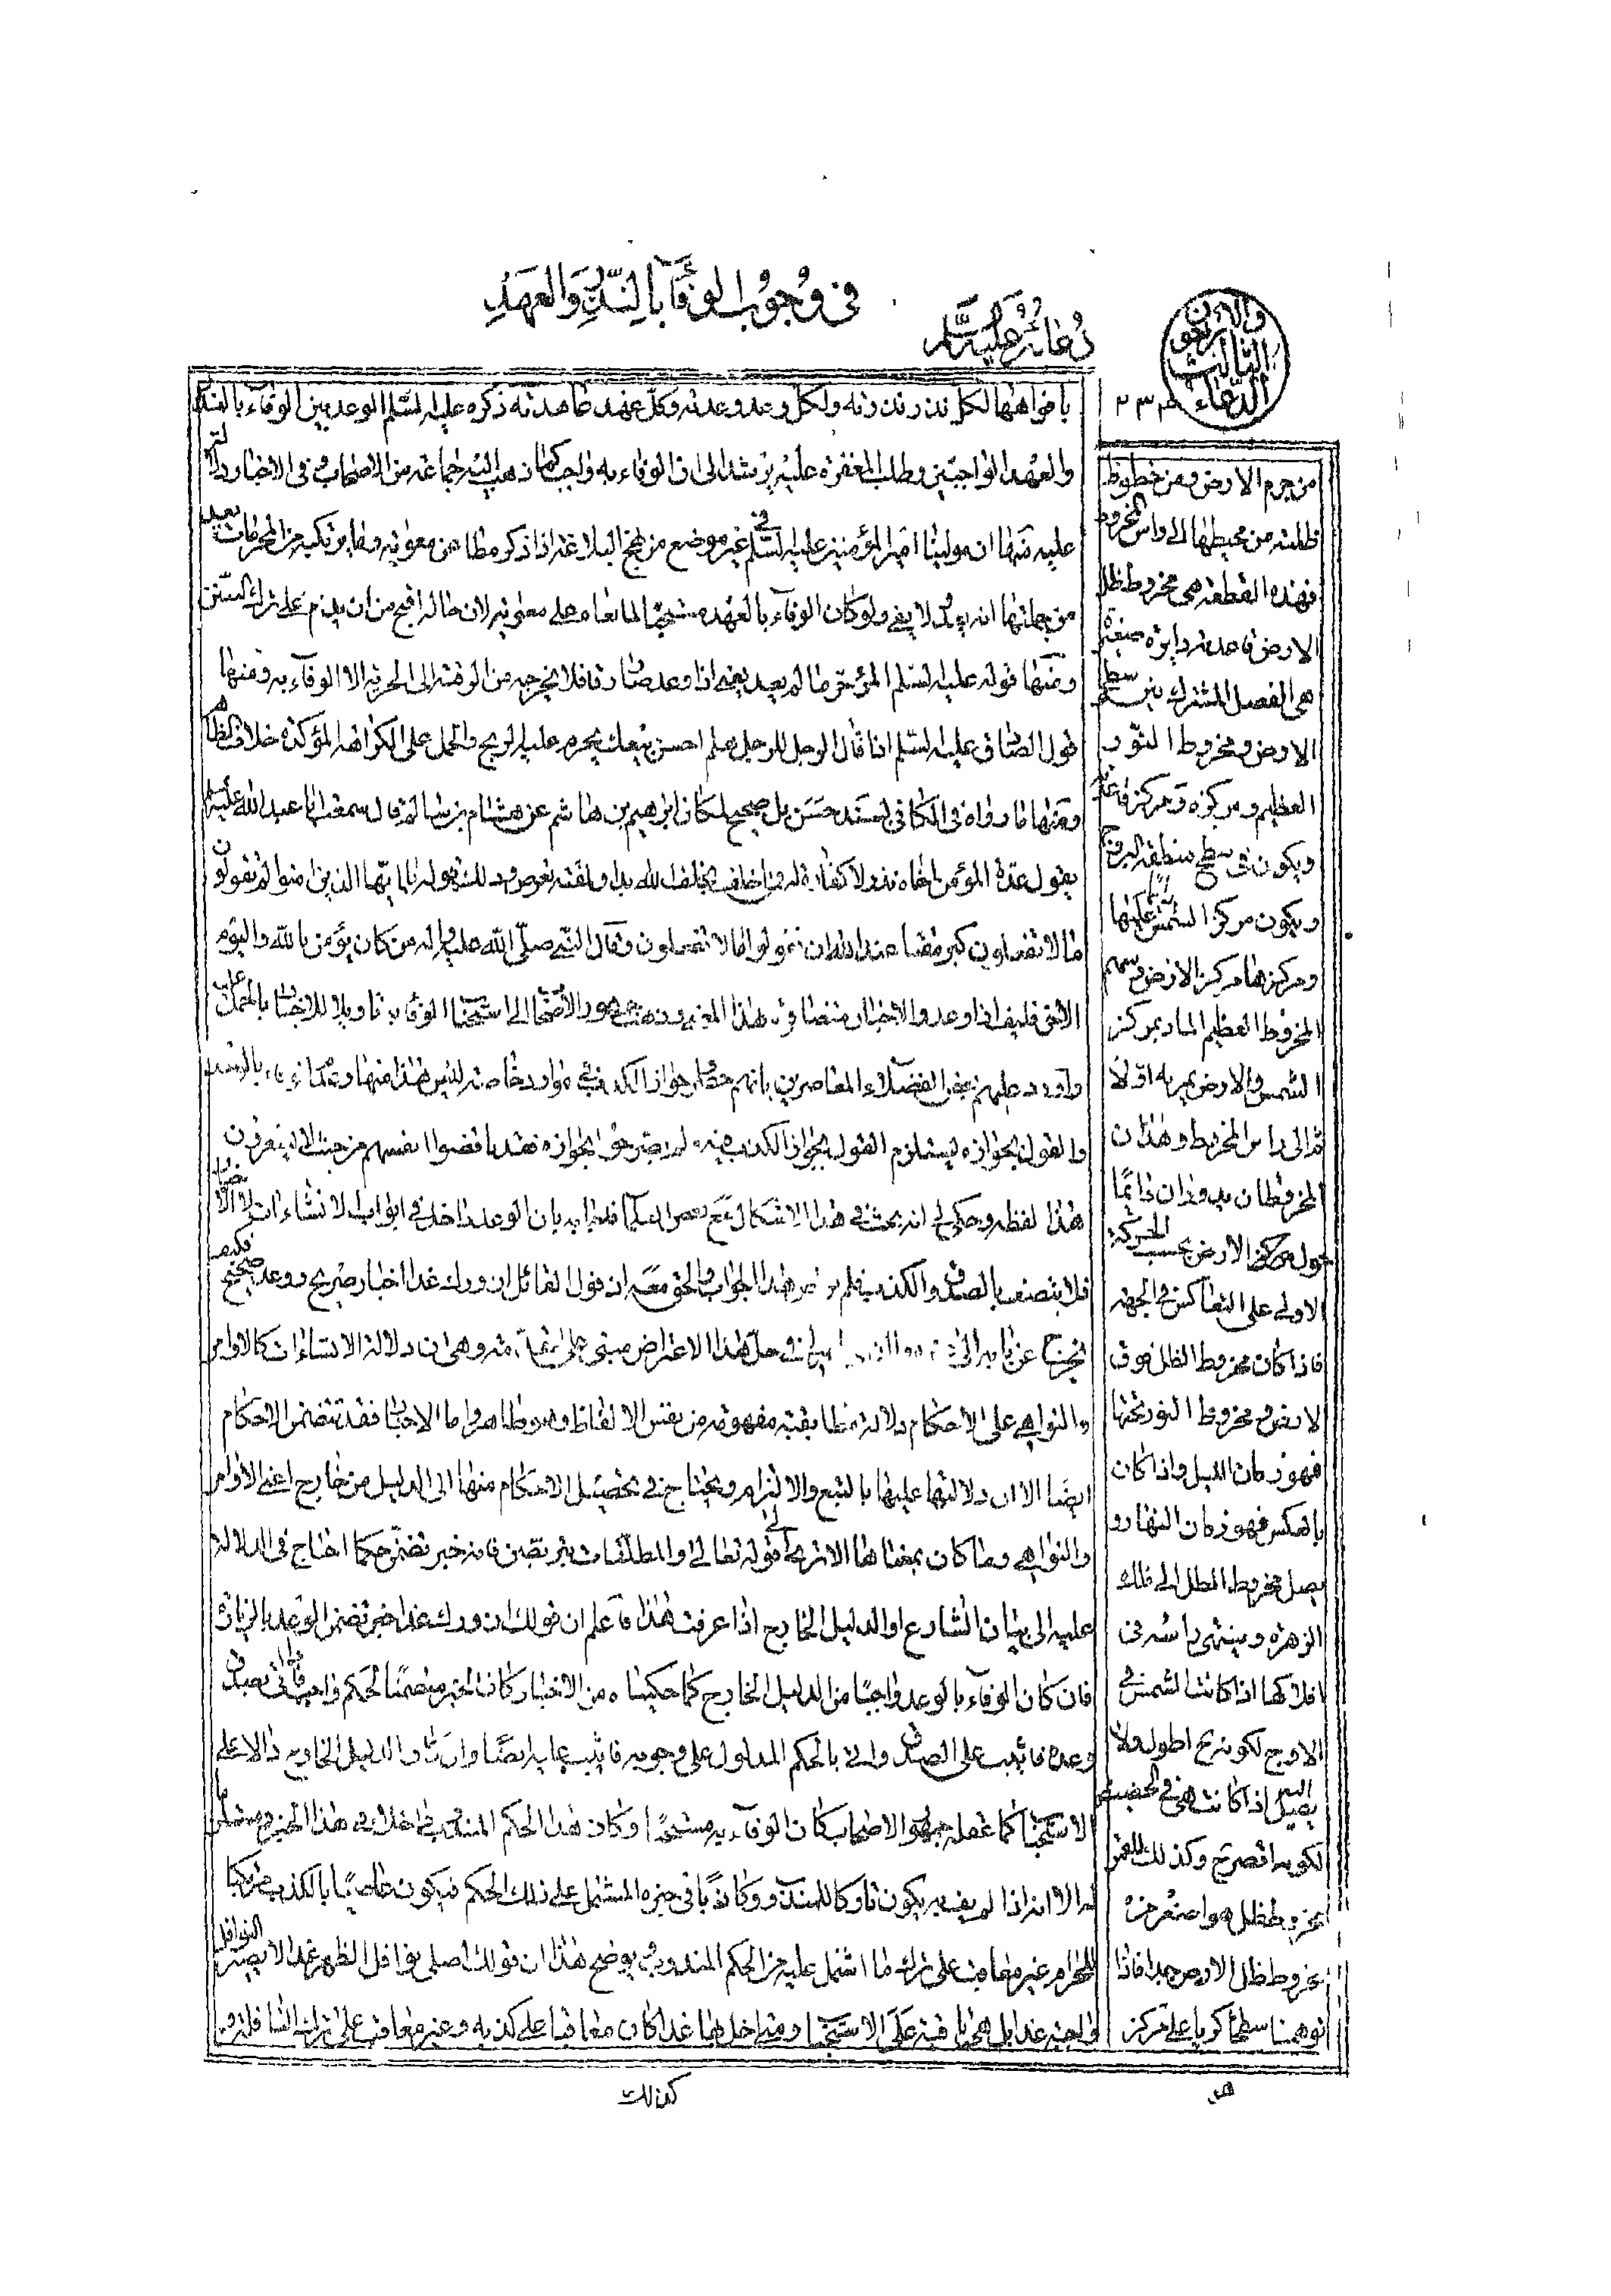 في وجوب الوفاء بالنذر والعهد
دعائه عليه السلم
الدعاء الثالث والاربعون
٢٣٢
بافواهها لكل نذر نذرته ولكل وعد وعدته وكل عهد عاهدته ذكره عليه السلم الوعد بين الوفاء بالنذر
والعهد الواجبين وطلب المغفرة عليه يرشد الى ان الوفاء به واجب كما ذهب اليه جماعة من الاصحاب وفي الاخبار دلالة
عليه منها ان مولينا امير المؤمنين عليه السلم في غير موضع من نهج البلاغة اذا ذكر مطاعن معوية وما يرتكبه من المحرمات يعد
من جملتها انه يعد ولا يفي ولو كان الوفاء بالعهد مستحبا لما نعاه على معوية لان حاله اقبح من ان يذم على ترك السنن
ومنها قوله عليه السلم المؤمن حر ما لم يعد يعني اذا وعد صار رقا فلا يخرجه من الرقية الى الحرية الا الوفاء به ومنها
قول الصادق عليه السلم اذا قال الرجل للرجل هلم احسن بيعك يحرم عليه الربح والحمل على الكراهة المؤكدة خلاف الظاهر
ومنها ما رواه في الكافي بسند حسن بل صحيح لمكان ابرهيم بن هاشم عن هشام بن سالم قال سمعت ابا عبد الله عليه السلم
يقول عدة المؤمن اخاه نذر لا كفارة له فمن اخلف فبخلف الله بدا ولمقته تعرض وذلك قوله يا ايها الذين امنوا لم تقولون
ما لا تفعلون كبر مقتا عند الله ان تقولوا ما لا تفعلون وقال النبي صلى الله عليه واله من كان يؤمن بالله واليوم
الاخر فليف اذا وعد والاخبار متضافرة بهذا المعنى وذهب جمهور الاصحاب الى استحباب الوفاء به تاويلا للاخبار بالحمل عليه
واورد عليهم بعض الفضلاء المعاصرين بانهم حصروا جواز الكذب في موارد خاصة ليس هذا منها
والقول بجوازه يستلزم القول بجواز الكذب فيه لم يصرحوا بجوازه فقد ناقضوا انفسهم من حيث لا يشعرون
هذا لفظه وحكى لي انه بحث في هذا الاشكال مع بعض فاجابه بان الوعد داخل في ابواب الانشاءات لا الاخبار
فلا يتصف بالصدق والكذب فلم يرتض هذا الجواب والحق معه لان قول القائل ازورك غدا اخبار صريح ووعد صحيح فكيف
يخرج عن حل هذا الاعتراض مبني على مقدمة وهي ان دلالة الانشاءات كالاوامر
والنواهي على الاحكام دلالة مطابقية مفهومة من نفس الالفاظ وهو ظاهر واما الاخبار فقد تتضمن الاحكام
ايضا الا ان دلالتها عليها بالتبع والالتزام ويحتاج في تحصيل الاحكام منها الى الدليل من خارج اعني الاوامر
والنواهي وما كان بمعناها الا ترى الى قوله تعالى والمطلقات يتربصن فانه خبر تضمن حكما احتاج في الدلالة
عليه الى بيان الشارع او الدليل الخارج اذا عرفت هذا فاعلم ان قولك ازورك غدا خبر تضمن الوعد بالزيارة
فان كان الوفاء بالوعد واجبا من الدليل الخارج كما حكيناه من الاخبار كان الخبر متضمنا لحكم واجب فاذا اتى بصدق
وعده فاثيب على الصدق واتى بالحكم المدلول على وجوبه فاثيب عليه ايضا وان كان الدليل الخارج دالا على
الاستحباب كما عقله جمهور الاصحاب كان الوفاء به مستحبا وكان هذا الحكم المندوب داخلا في هذا الخبر
له الا انه اذا لم يف به يكون تاركا للمندوب وكاذبا في خبره المشتمل على ذلك الحكم فيكون عاصيا بالكذب مرتكبا
للحرام غير معاقب على ترك ما اشتمل عليه من الحكم المندوب يوضح هذا ان قولك اصلي نوافل الظهر غدا لا يصير النوافل
واجبة غدا بل هي باقية على الاستحباب ومتى اخل بها غدا كان معاقبا على كذبه وغير معاقب على ترك النافلة و
كذلك
من جرم الارض ومن خطوط
ظلية من محيطها الى راس المخروط
فهذه القطعة هي مخروط ظل
الارض قاعدته دايرة صغيرة
هي الفصل المشترك بين سطح
الارض ومخروط النور
العظيم ومركزه ومركز قاعدته
ويكون في سطح منطقة البروج
ويكون مركز الشمس عليها
ومركزها مركز الارض وسهم
المخروط العظيم المار بمركز
الشمس والارض يمر به اولا
ثم الى راس المخروط وهذان
المخروطان يدوران دائما
حول مركز الارض بحسب الحركة
الاولى على التعاكس في الجهة
فاذا كان مخروط الظل فوق
الارض ومخروط النور تحتها
فهو زمان الليل واذا كان
بالعكس فهو زمان النهار و
يصل مخروط الظل الى فلك
الزهرة وينتهي راسه في
افلاكها اذا كانت الشمس في
الاوج لكونه ح اطول ولا
يصل اليه اذا كانت هي في الحضيض
لكونه اقصر ح وكذلك للقمر
مخروط ظل هو اصغر من
مخروط ظل الارض جدا فاذا
توهمنا سطحا كريا على مركز